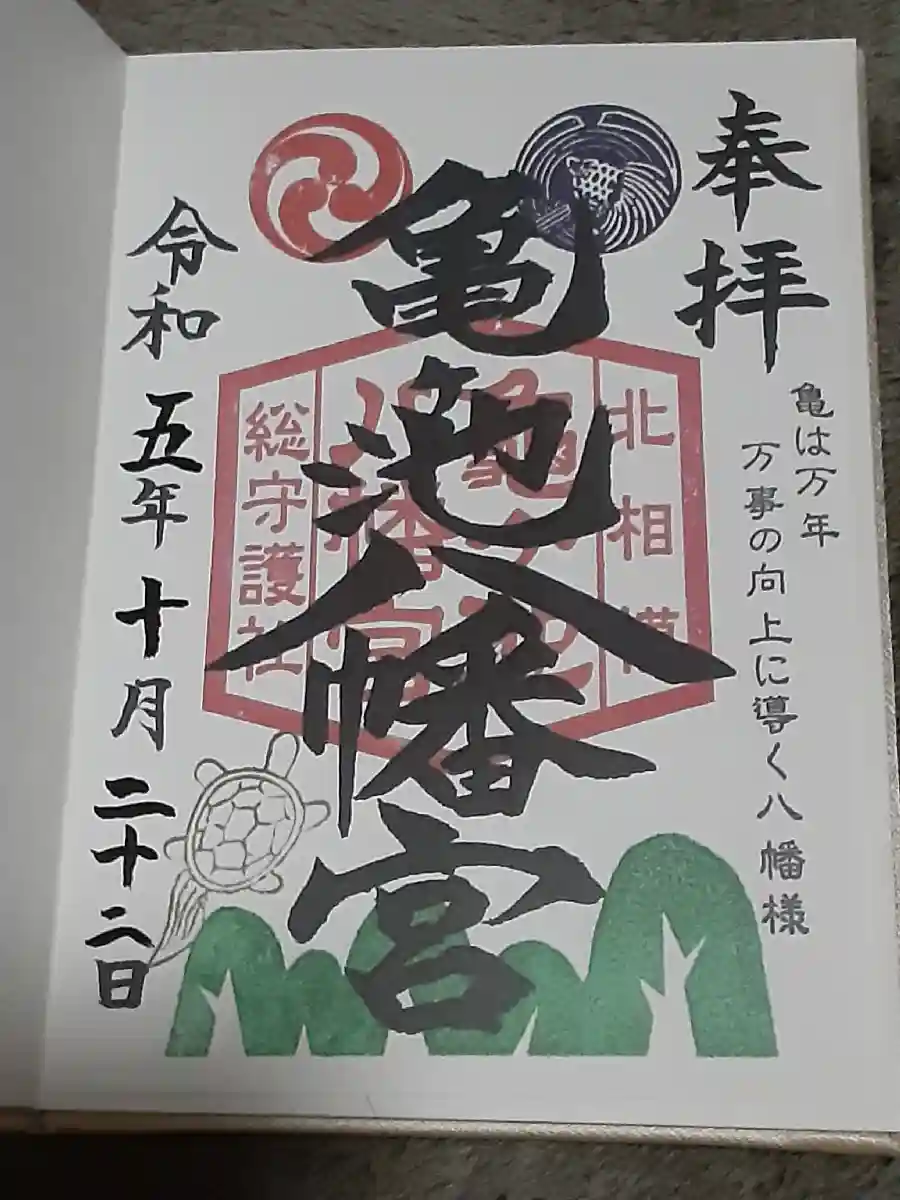 奉拝
亀は万年
万事の向上に導く八幡様
亀池八幡宮
北相模
総守護社
令和五年十月二十二日